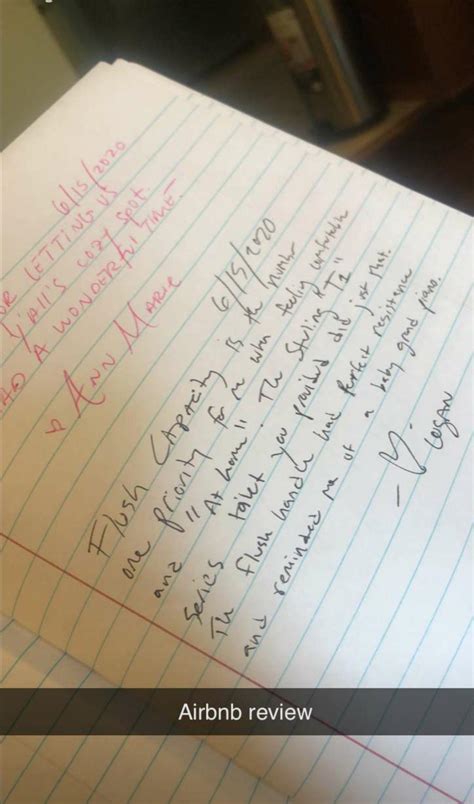 6/15/2020
OR LETTING US
Y'all's cozy spot.
HAD A WONDERFUL TIME.
♡ ANN MARIE
6/15/2020
Flush Capacity is the number
one priority for me when feeling comfortable
and "At home". The Sterling RT2"
series toilet you provided did just that.
The flush handle had perfect resistance
and reminded me of a baby grand piano.
- ♡. LOGAN
Airbnb review